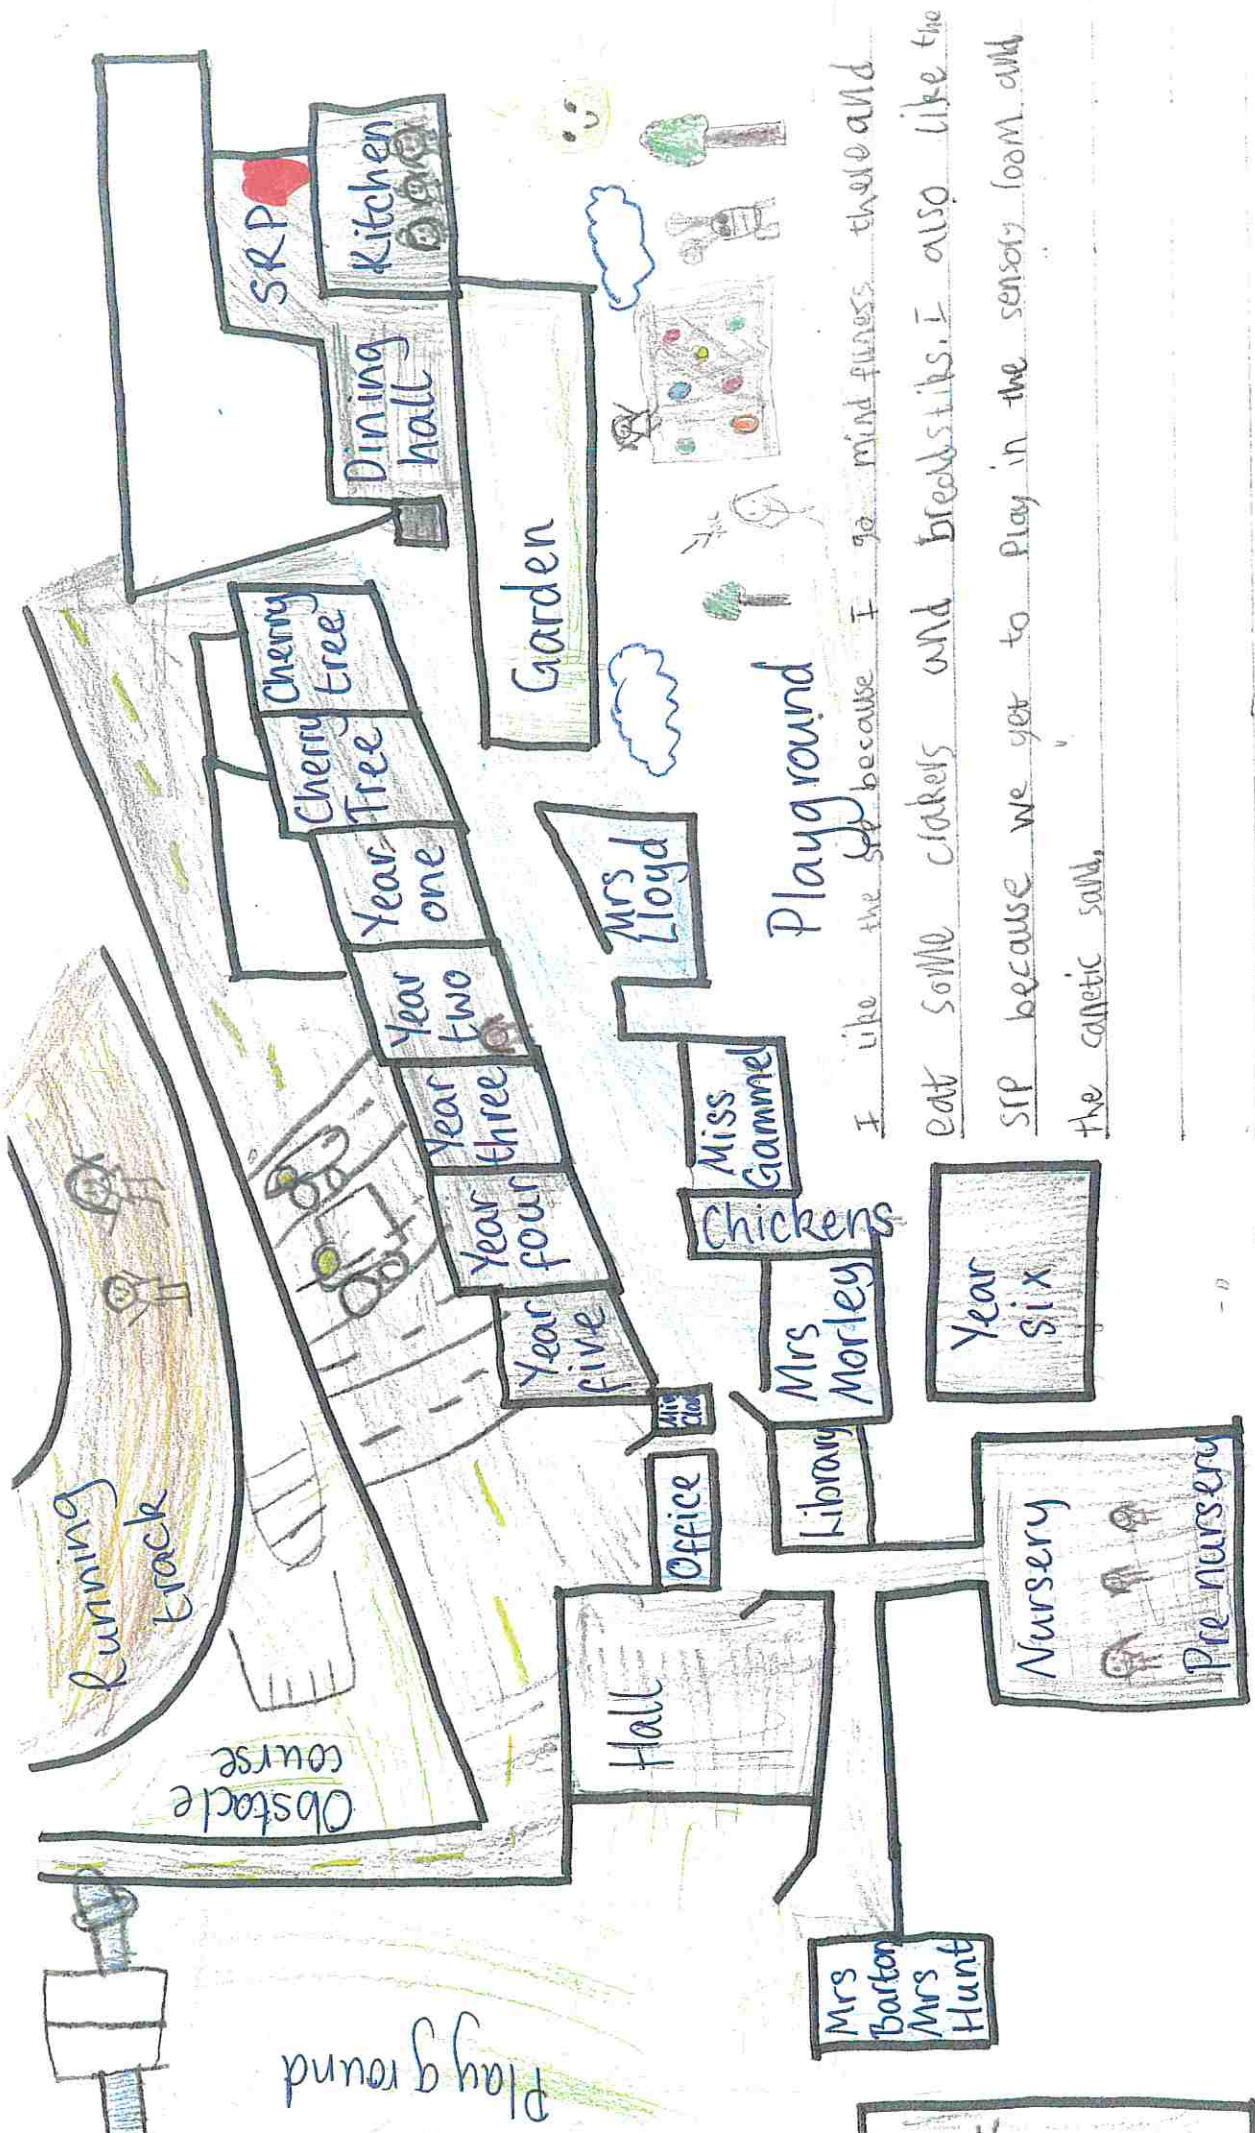 Running
track
Obstacle
course
Playground
SRP
Kitchen
Dining
hall
Garden
Cherry
tree
Cherry
Tree
Year
one
Year
two
Year
three
Year
four
Year
five
Office
Hall
Library
Mrs
Morley
Chickens
Miss
Gammel
Mrs
Lloyd
Playground
Year
six
Nursery
Pre nursery
Mrs
Barton
Mrs
Hunt
I like the srp because I go mind fulness there and
eat some crakers and breadstiks. I also like the
SrP because we get to Play in the sensory room and
the canetic sand.